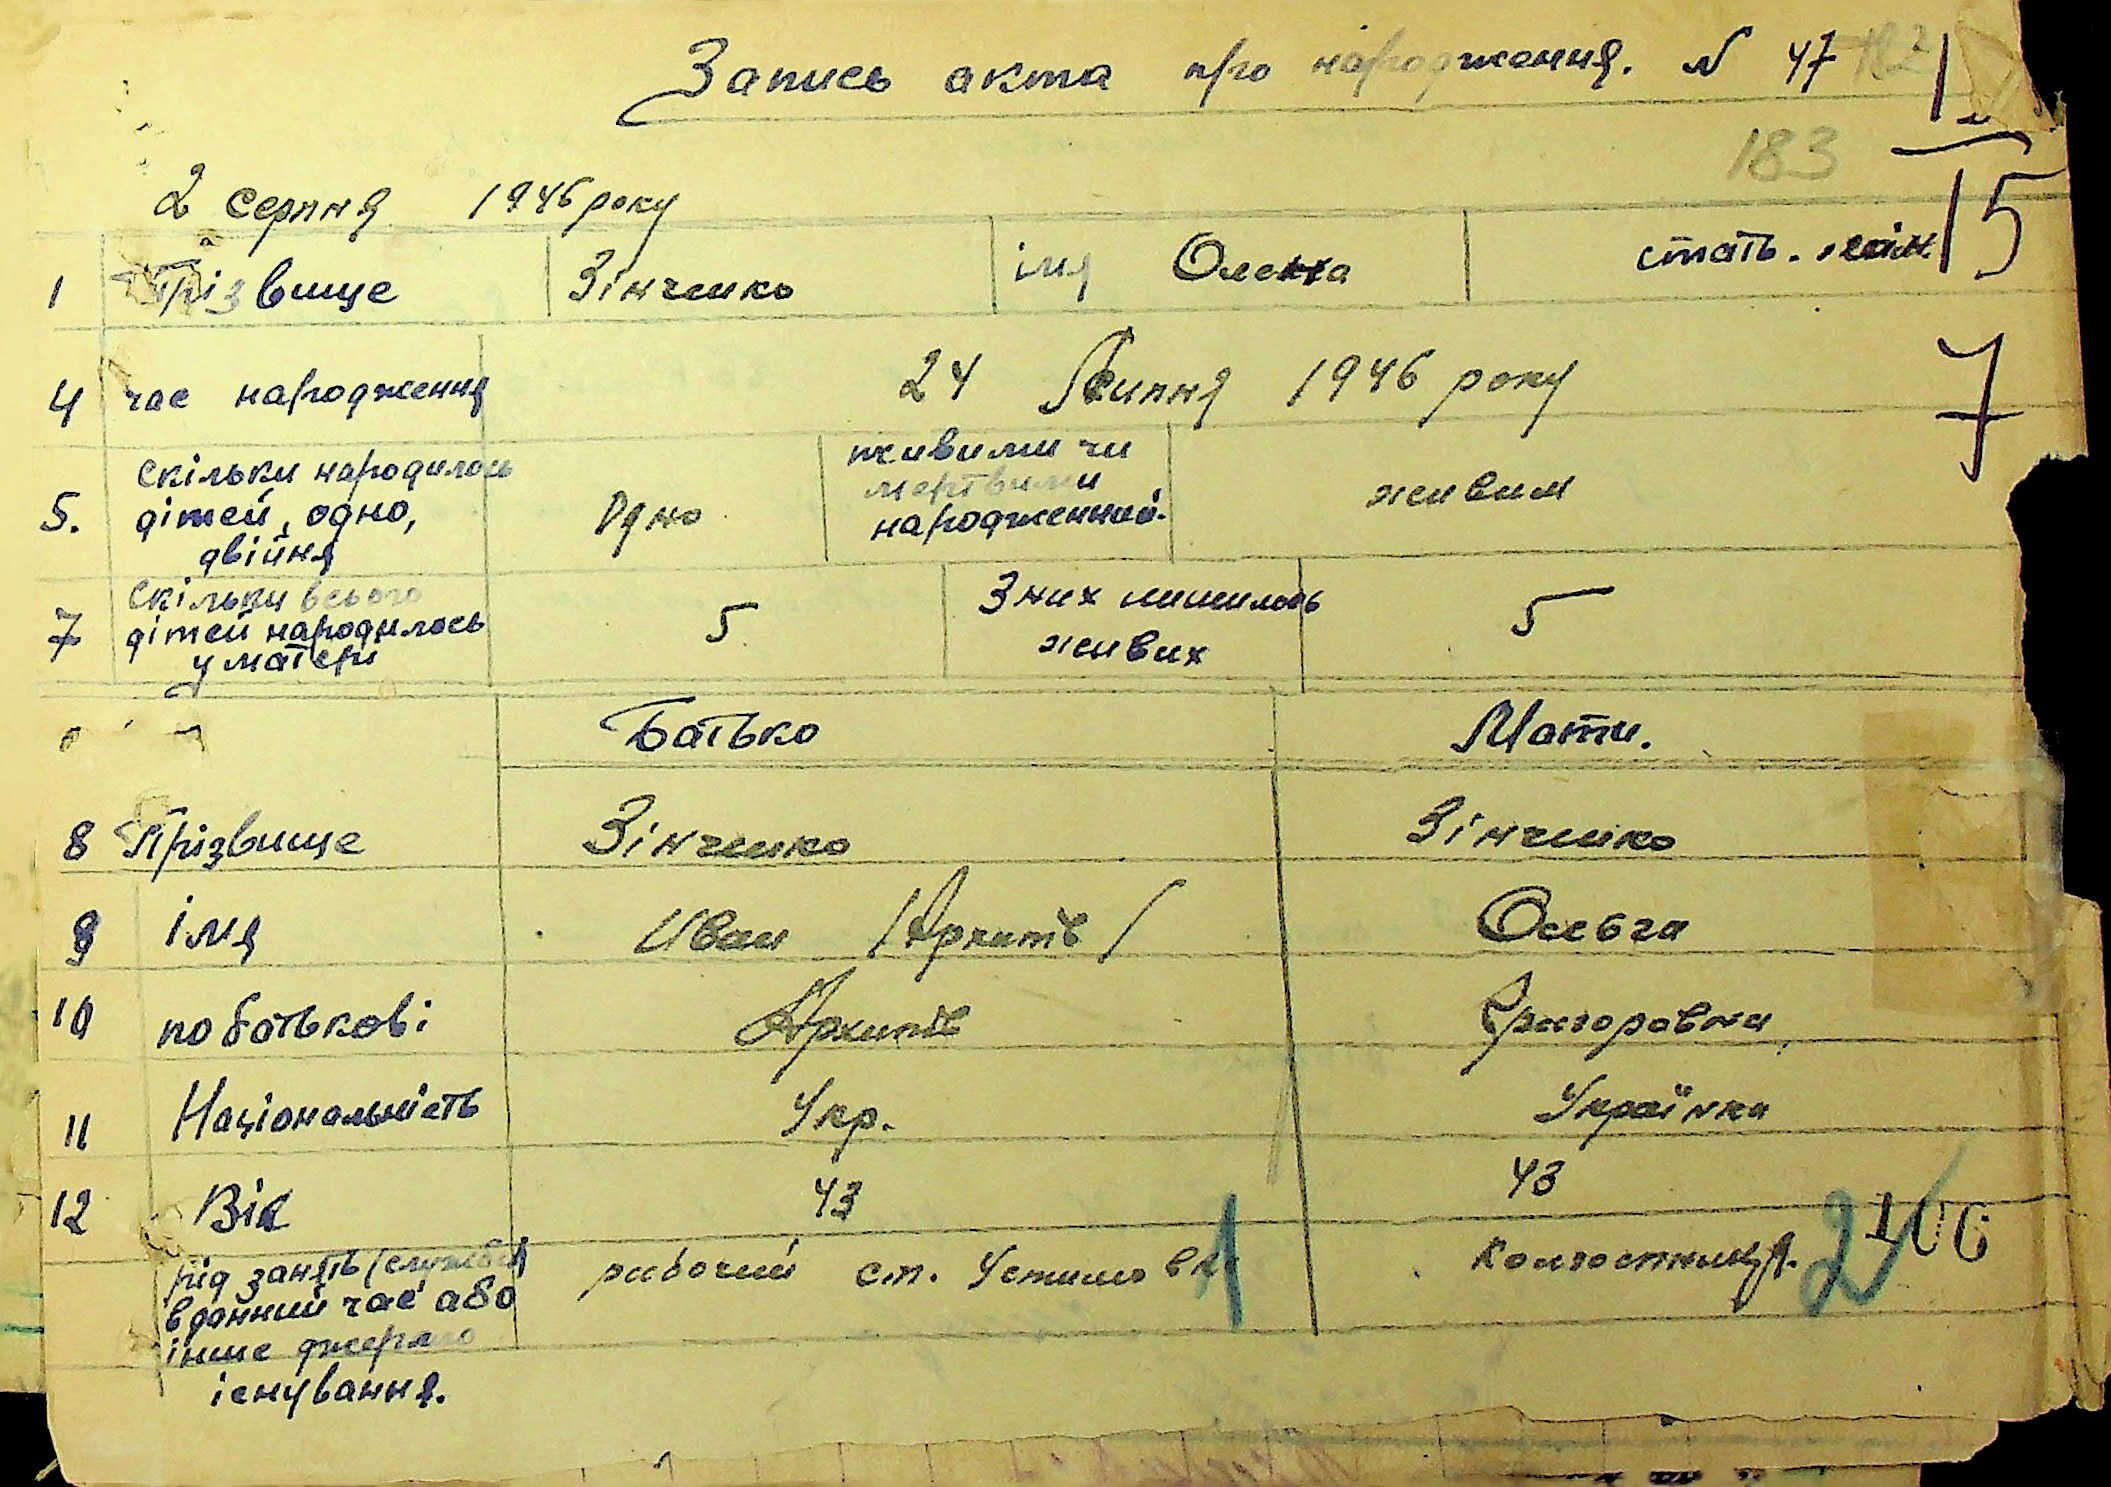 Запись акта про народження. N 47 182
183
2 серпня 1946 року
15
1 Прізвище Зінченко імя Олена стать. жін.
7
4 час народження 24 Липня 1946 року
5. Скільки народилось дітей, одно, двійня Одно живими чи мертвими народженний. живим
7 Скільки всього дітей народилось у матери 5 З них лишилось живих 5
Батько Мати.
8 Прізвище Зінченко Зінченко
9 імя Иван /Архипів/ Ольга
10 по батькові Архипів Григоровна
11 Національність Укр. Українка
12 Вік 43 43
рід занять (служби) в данний час або інше джерело існування. рабочий ст. Устимовка 1 Колгоспниця. 2